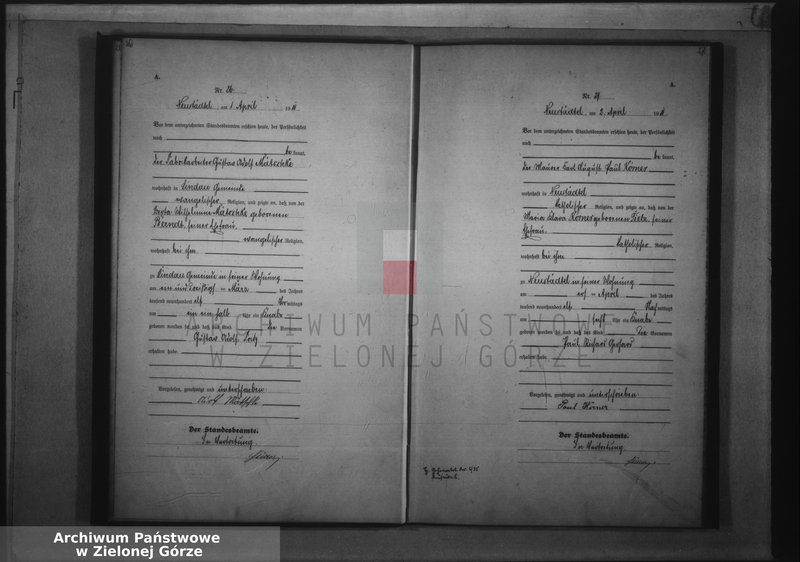 A.
Nr. 26
Neustädtel am 1 April 19 11
Vor dem unterzeichneten Standesbeamten erschien heute, der Persönlichkeit
nach
be kannt,
der Fabrikarbeiter Gustav Adolf
wohnhaft in Lindau Gemeinde
evangelischer Religion, und zeigte an, daß von der
geborenen
seiner Ehefrau
evangelischer Religion,
wohnhaft bei ihm
zu Lindau Gemeinde in seiner Wohnung
am ein und dreißigsten März des Jahres
tausend neunhundert elf Vor mittags
um ein ein halb Uhr ein Knabe
geboren worden sei und daß das Kind die Vornamen
Gustav Adolf Fritz
erhalten habe.
Vorgelesen, genehmigt und unterschrieben
Der Standesbeamte.
In Vertretung
A.
Nr. 27
Neustädtel am 2 April 19 11
Vor dem unterzeichneten Standesbeamten erschien heute, der Persönlichkeit
nach
be kannt,
der Maurer Carl August Paul Körner
wohnhaft in Neustädtel
katholischer Religion, und zeigte an, daß von der
Maria Clara Körner geborenen Tietz seiner
Ehefrau
katholischer Religion,
wohnhaft bei ihm
zu Neustädtel in seiner Wohnung
am ersten April des Jahres
tausend neunhundert elf Nach mittags
um Uhr ein Knabe
geboren worden sei und daß das Kind die Vornamen
Paul Richard Gerhard
erhalten habe.
Vorgelesen, genehmigt und unterschrieben
Paul Körner
Der Standesbeamte.
In Vertretung
ARCHIWUM PAŃSTWOWE
W ZIELONEJ GÓRZE
Archiwum Państwowe
w Zielonej Górze